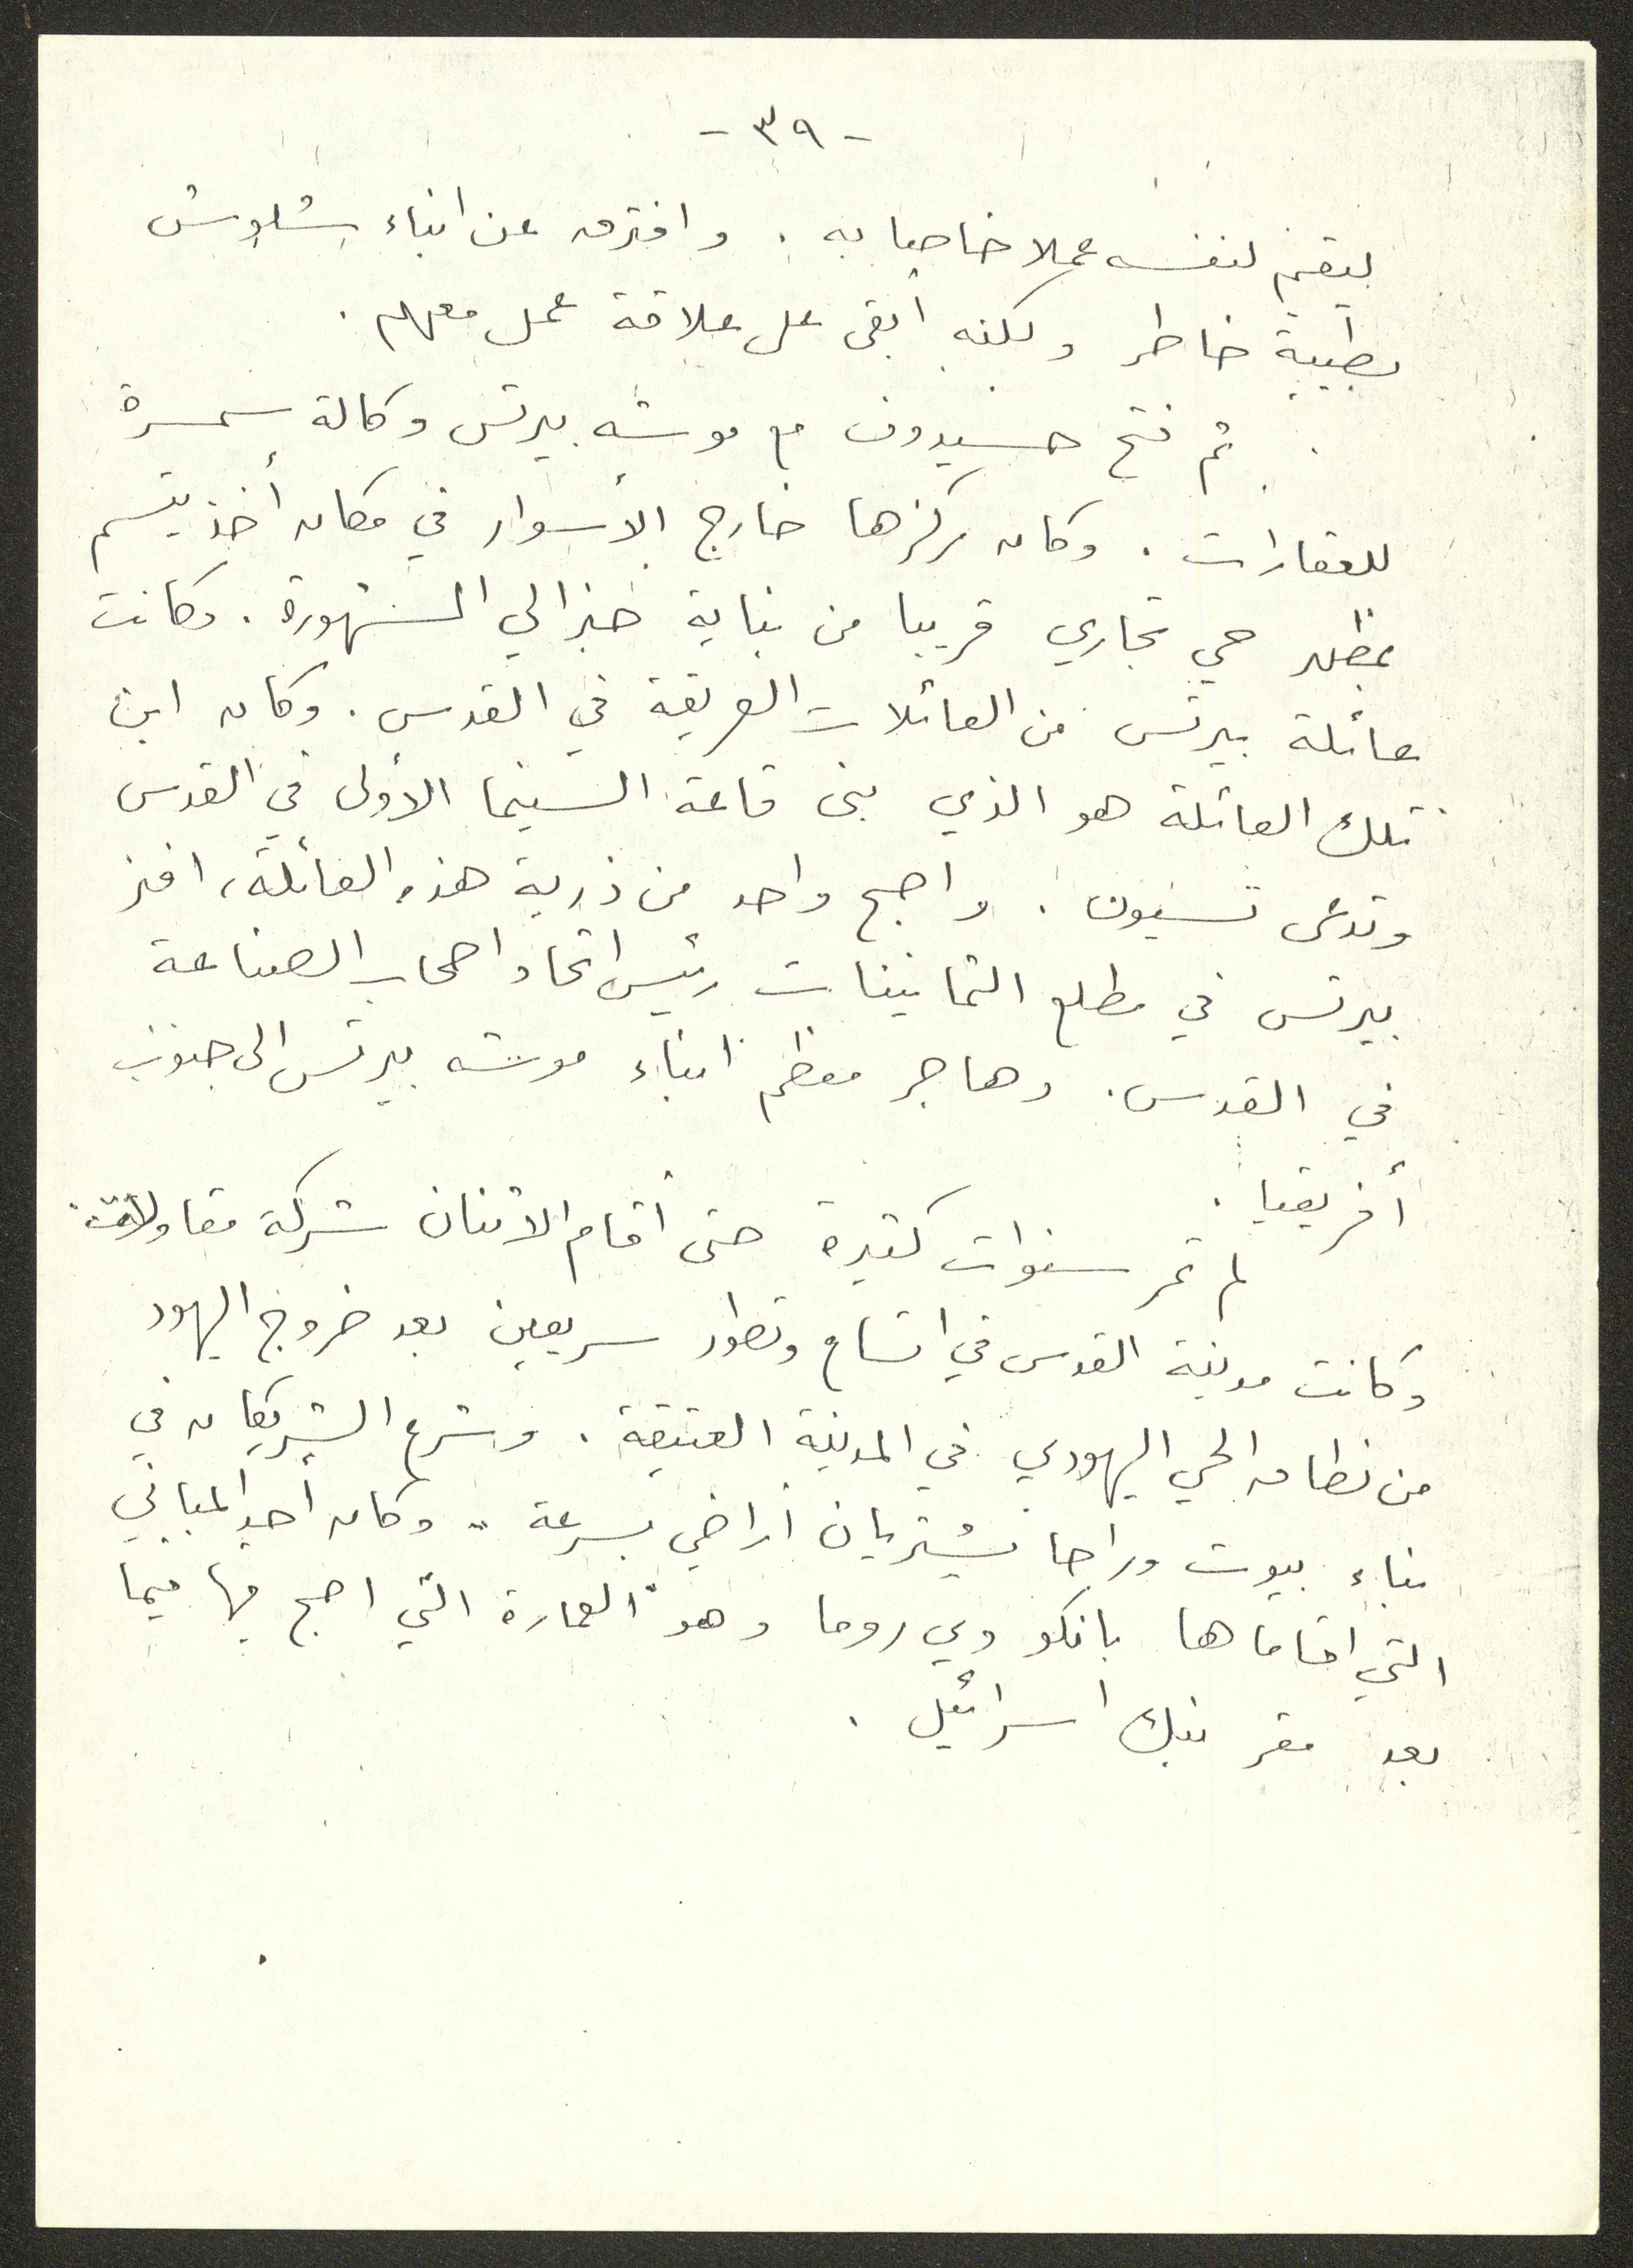 - ٣٩ -
ليقيم لنفسه عملا خاصا به . وافترق عن ابناء شلوش
بطيبة خاطر ولكنه أبقى على علاقة عمل معهم .
ثم فتح حسيدوف مع موشه بيرتس وكالة سمسرة
للعقارات . وكان مركزها خارج الأسوار في مكان أخذ يتسم
بمظهر حي تجاري قريبا من بناية جنرالي المشهورة . وكانت
عائلة بيرتس من العائلات العريقة في القدس . وكان ابن
تلك العائلة هو الذي بنى قاعة السينما الأولى في القدس
وتدعى تسيون . واصبح واحد من ذرية هذه العائلة ،
بيرتس في مطلع الثمانينات رئيس اتحاد اصحاب الصناعة
في القدس . وهاجر معظم أبناء موشه بيرتس الى جنوب
أفريقيا .
لم تمر سنوات كثيرة حتى أقام الاثنان شركة مقاولات
وكانت مدينة القدس في اتساع وتطور سريعين بعد خروج اليهود
من نطاق الحي اليهودي في المدينة العتيقة . وشرع الشريكان في
بناء بيوت وراحا يشتريان أراضي بسرعة . وكان أحد المباني
التي اقاماها بانكو دي روما وهو العمارة التي اصبح فيها فيما
بعد مقر بنك اسرائيل .